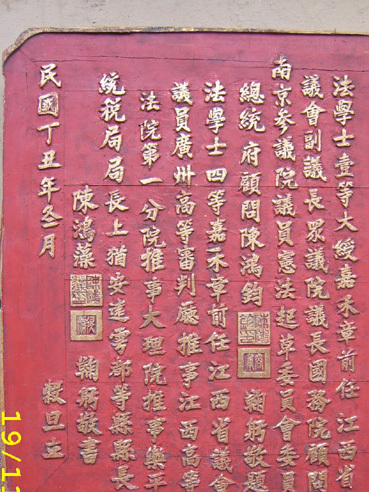 法學士壹等大綬嘉禾章前任江西省
議會副議長眾議院議長國務院顧問
南京參議院議員憲法起草委員會委員
總統府顧問陳鴻鈞 鞠躬敬題
法學士四等嘉禾章前任江西省議會
議員廣州高等審判廳推事江西高等
法院第一分院推事大理院推事樂平
統税局局長上猶安遠雩都等縣縣長
陳鴻藻 鞠躬敬書
民國丁丑年冬月 穀旦立
19/1